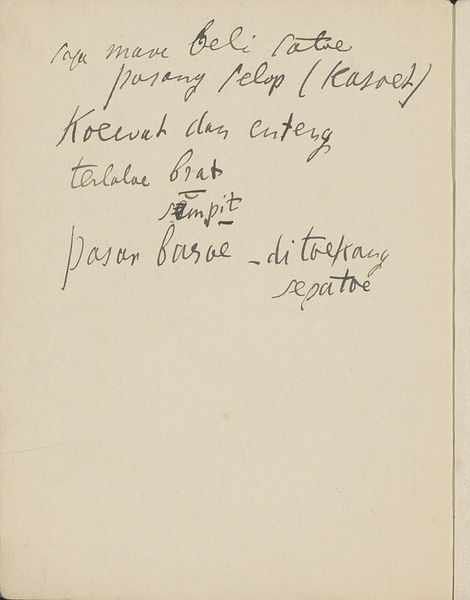 saja maoe beli satoe
pasang selop (Kasoet)
Koewat dan enteng
terlaloe brat
sĕmpit
pasar baroe - ditoekang
sepatoe